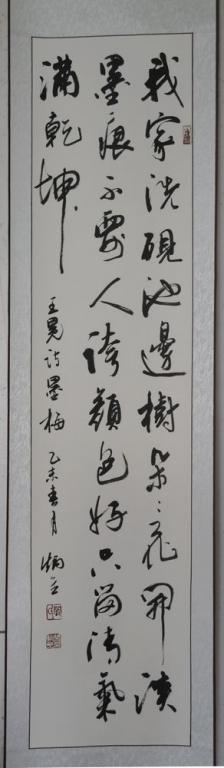 我家洗硯池邊樹朵々花開淡
墨痕不要人誇顏色好只留清氣
滿乾坤
王冕詩墨梅乙未春月炳立